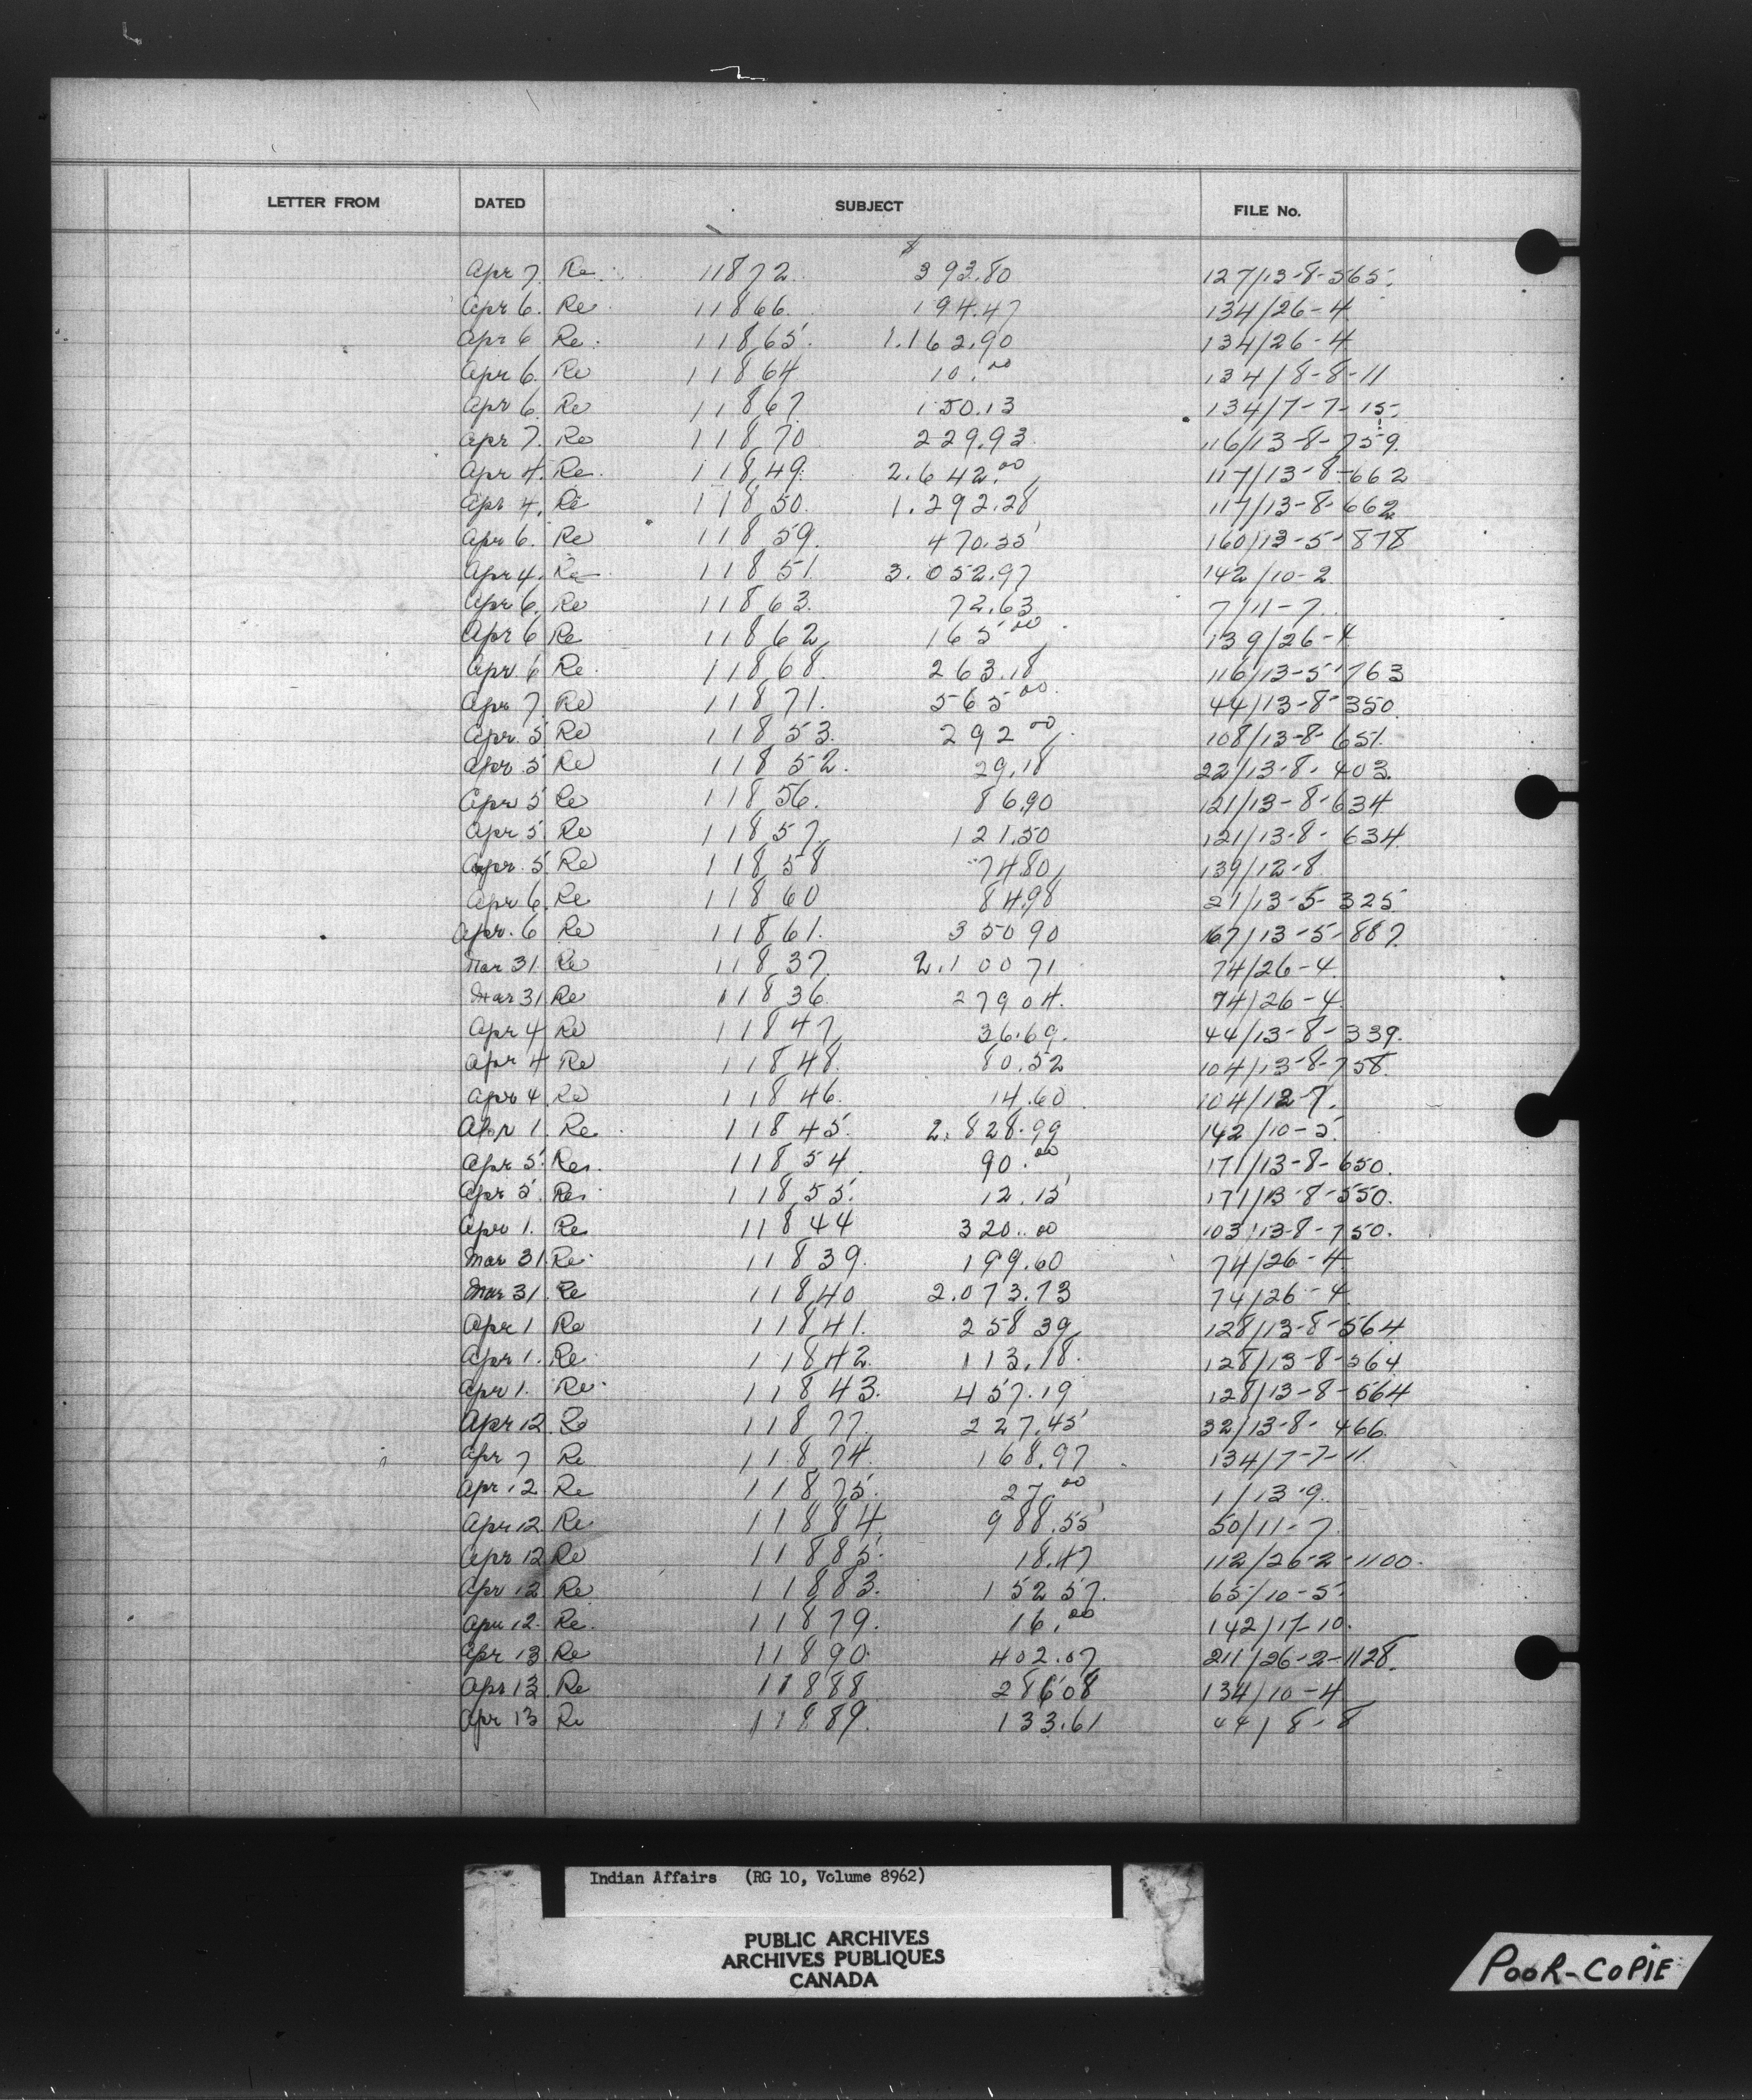 LETTER FROM DATED SUBJECT FILE No.
$
Apr 7. Re. 11872. 393.80 127/13-8-565.
Apr 6. Re. 11866. 194.47 134/26-4.
Apr 6 Re. 11865. 1.162.90 134/26-4
Apr 6. Re 11864 10.00 134/8-8-11
Apr 6. Re 11867 150.13 134/7-7-15.
Apr 7. Re 11870 229.93. 116/13-8-759.
Apr 4. Re. 11849. 2.642.00 117/13-8-662
Apr 4. Re 11850. 1.292.28 117/13-8-662
Apr 6. Re 11859. 470.55 160/13-5-878
Apr 4. Re 11851 3.052.97 142/10-2.
Apr 6. Re 11863. 72.63 7/11-7.
Apr 6 Re 11862 165 00 139/26-4
Apr 6 Re. 11868. 263.18 116/13-5-763
Apr 7 Re 11871. 565 00. 44/13-8-350.
Apr. 5 Re 11853. 292 00. 108/13-8-651.
Apr. 5 Re 11852. 29.18 22/13-8-403.
Apr 5 Re 11856. 86.90 121/13-8-634
Apr 5. Re 11857 121.50 121/13-8-634.
Apr. 5 Re 11858 74.80 139/12-8
Apr 6. Re 11860 84.98 21/13-5-325
Apr. 6 Re 11861. 350 90 167/13-5-887.
Mar 31 Re 11837. 2.100 71 74/26-4.
Mar 31 Re 11836. 279 04. 74/26-4.
Apr 4 Re 11847 36.69. 44/13-8-339.
Apr 4 Re 11848. 80.52 104/13-8-758.
Apr 4. Re 11846. 14.60 104/12-7.
Apr 1. Re. 11845. 2.828.99 142/10-5.
Apr 5. Re. 11854. 90.00 171/13-8-650.
Apr 5. Re. 11855. 12.15 171/13-8-550.
Apr 1. Re 11844 320.00 103/13-8-750.
Mar 31. Re. 11839. 199.60 74/26-4.
Mar 31. Re 11840 2.073.73 74/26-4.
Apr 1 Re 11841. 258 39 128/13-8-564
Apr 1. Re. 11842. 113.18. 128/13-8-564
Apr 1. Re. 11843. 457.19 128/13-8-564
Apr 12. Re 11877. 227.45 32/13-8-466.
Apr 7 Re 11874. 168.97 134/7-7-11
Apr 12 Re 11875. 27.00 1/13-9.
Apr 12. Re 11884 988.55 50/11-7
Apr 12 Re 11885. 18.47 112/26-2-1100.
Apr 12 Re 11883. 152 57. 65/10-5.
Apr 12. Re. 11879. 16.00 142/17-10.
Apr 13 Re 11890. 402.07 211/26-2-1128.
Apr 13. Re 11888 286 08 134/10-4
Apr 13 Re 11889. 133.61 44/8-8
Indian Affairs (RG 10, Volume 8962)
PUBLIC ARCHIVES
ARCHIVES PUBLIQUES
CANADA
POOR-COPIE